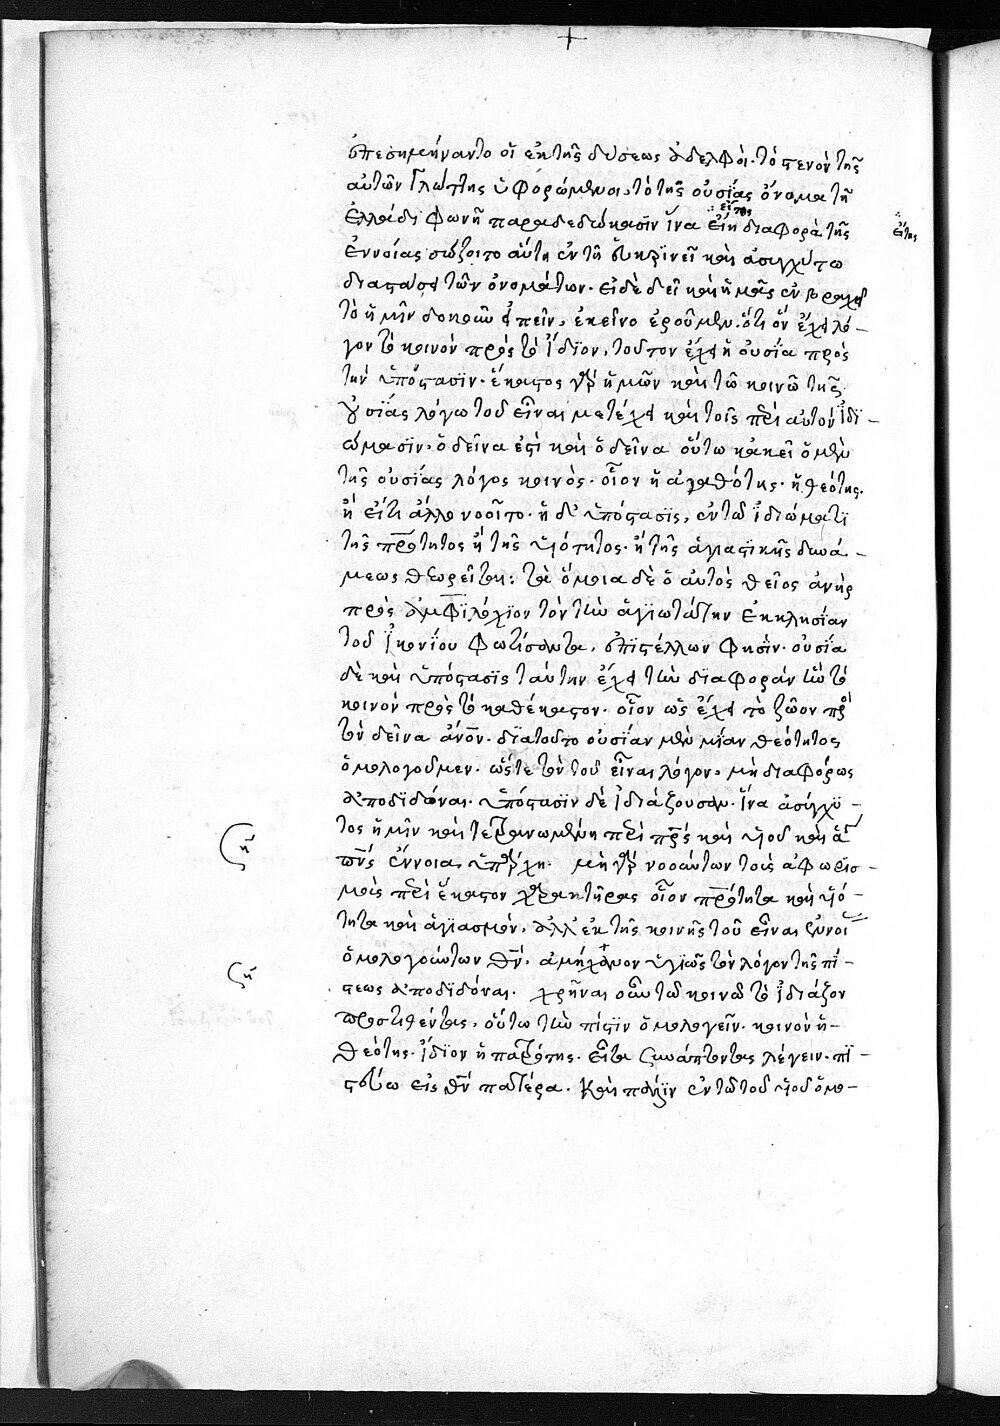 ἐπεσημήναντο οἱ ἐκ τῆς δύσεως ἀδελφοί· τὸ στενὸν τῆς
αὐτῶν γλώττης ὑφορώμενοι, τὸ τῆς οὐσίας ὄνομα τῆ
ἑλλάδι φωνῆ παραδεδώκασιν ἵνα εἴη διαφορὰ τῆς
ἐννοίας σώζοιτο αὕτη ἐν τῆ εὐκρινεῖ καὶ ἀσυγχύτω
διαστάσει τῶν ὀνομάτων· εἰ δὲ δεῖ καὶ ἡμᾶς ἐν βραχεῖ
τὸ ἡμῖν δοκοῦν εἰπεῖν, ἐκεῖνο ἐροῦμεν· ὅτι ὃν ἔχει λό-
γον τὸ κοινὸν πρὸς τὸ ἴδιον, τοῦτον ἔχει ἡ οὐσία πρὸς
τὴν ὑπόστασιν· ἕκαστος γὰρ ἡμῶν καὶ τῶ κοινῶ τῆς
οὐσίας λόγω τοῦ εἶναι μετέχει καὶ τοῖς περὶ αὐτὸν ἰδι-
ώμασιν· ὁ δεῖνα ἐστὶ καὶ ὁ δεῖνα οὕτω κἀκεῖ ὁ μὲν
τῆς οὐσίας λόγος κοινὸς· οἷον ἡ ἀγαθότης· ἡ θεότης·
ἢ εἴ τι ἄλλο νοοῖτο· ἡ δὲ ὑπόστασις, ἐν τῶ ἰδιώματι
τῆς πρότητος ἢ τῆς υἱότητος· ἢ τῆς ἁγιαστικῆς δυνά-
μεως θεωρεῖται: τὰ ὅμοια δὲ ὁ αὐτὸς θεῖος ἀνὴρ
πρὸς ἀμφιλόχιον τὸν τὴν ἁγιωτάτην ἐκκλησίαν
τοῦ ἰκονίου φωτίσαντα, ἐπιστέλλων φησίν· οὐσία
δὲ καὶ ὑπόστασις ταύτην ἔχει τὴν διαφορὰν ἣν τὸ
κοινὸν πρὸς τὸ καθέκαστον· οἷον ὡς ἔχει τὸ ζῶον πρὸς
τὸν δεῖνα ἄνον· διατοῦτο οὐσίαν μὲν μίαν θεότητος
ὁμολογοῦμεν· ὥστε τὸν τοῦ εἶναι λόγον, μὴ διαφόρως
ἀποδιδόναι· ὑπόστασιν δὲ ἰδιάζουσαν· ἵνα ἀσύγχυ-
τος ἡμῖν καὶ τετρανωμένη περὶ πρς καὶ υἱοῦ καὶ ἁγίου
πνς ἔννοια ὑπάρχη· μὴ γὰρ νοούντων τοὺς ἀφωρισ-
μοὺς περὶ ἕκαστον χαρακτῆρας οἷον πρότητα καὶ υἱό-
τητα καὶ ἁγιασμὸν, ἀλλ' ἐκ τῆς κοινῆς τοῦ εἶναι ἐννοίας
ὁμολογούντων θν, ἀμήχανον ὑγιῶς τὸν λόγον τῆς πί-
στεως ἀποδιδόναι· χρῆναι οὖν τῶ κοινῶ τὸ ἰδιάζον
προστιθέντας, οὕτω τὴν πίστιν ὁμολογεῖν· κοινὸν ἡ
θεότης· ἴδιον ἡ πατρότης· εἶτα συνάπτοντας λέγειν· πι-
στεύω εἰς θν πατέρα· καὶ πάλιν ἐν τῶ τοῦ υἱοῦ ὁμο-